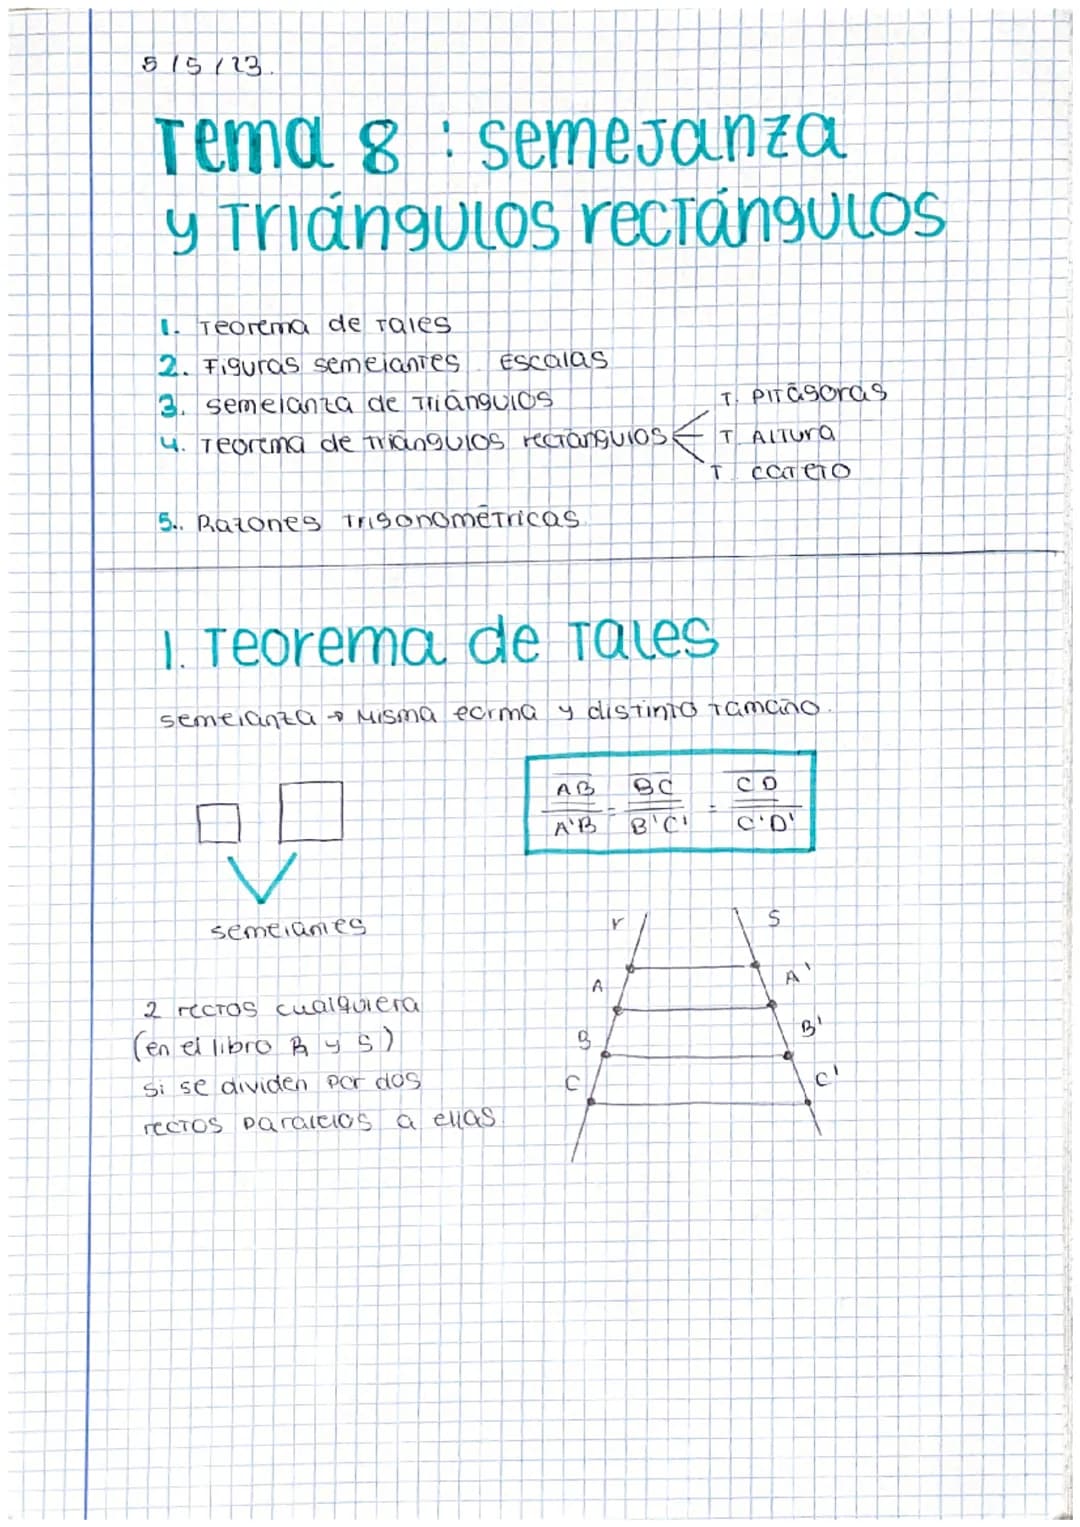 5/5/23.
Tema 8 : semejanza
y Triángulos rectángulos
1. Teorema de Tales
2. Figuras semejantes. Escalas
3. semejanza de Triángulos
4. Teorema de Triángulos rectángulos
T. Pitágoras
T. Altura
T. cateto
5. Razones Trigonométricas
1. Teorema de Tales
semejanza → Misma forma y distinto Tamaño.
AB BC CD
= =
A'B B'C' C'D'
semejantes
r s
A A'
B B'
C C'
2 rectos cualquiera
(en el libro R y S)
Si se dividen por dos
rectos paralelos a ellas